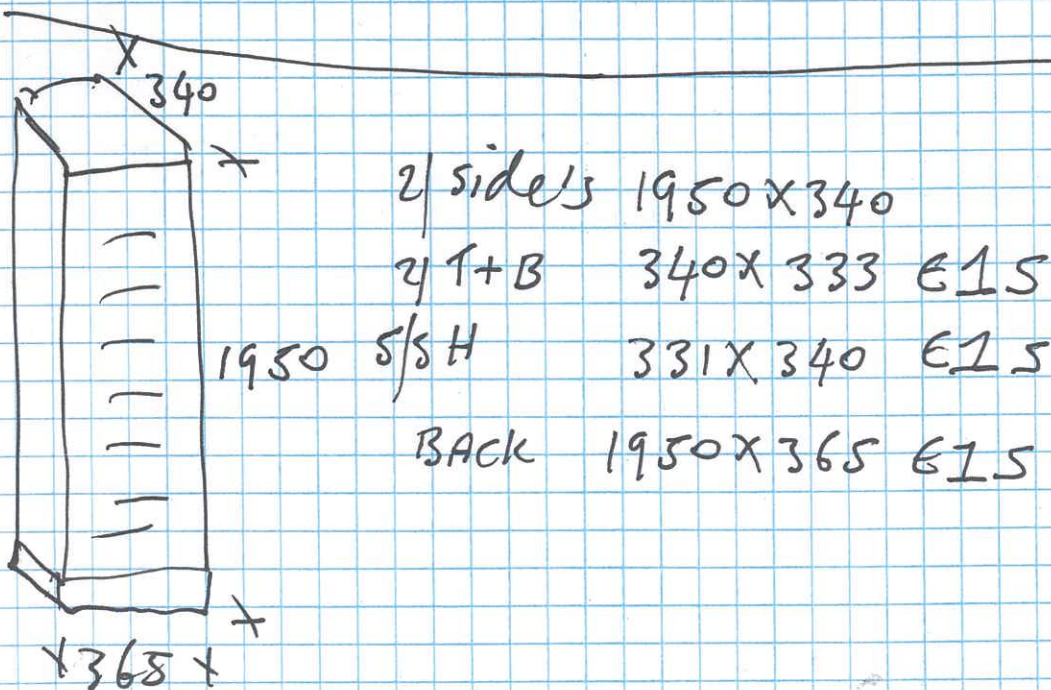 340
2/ side's 1950X340
2/ T+B 340X 333 E1S
1950 5/SH 331X 340 E1S
BACK 1950X365 E1S
X365X